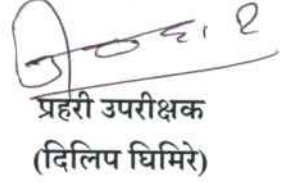 प्रहरी उपरीक्षक
(दिलिप घिमिरे)